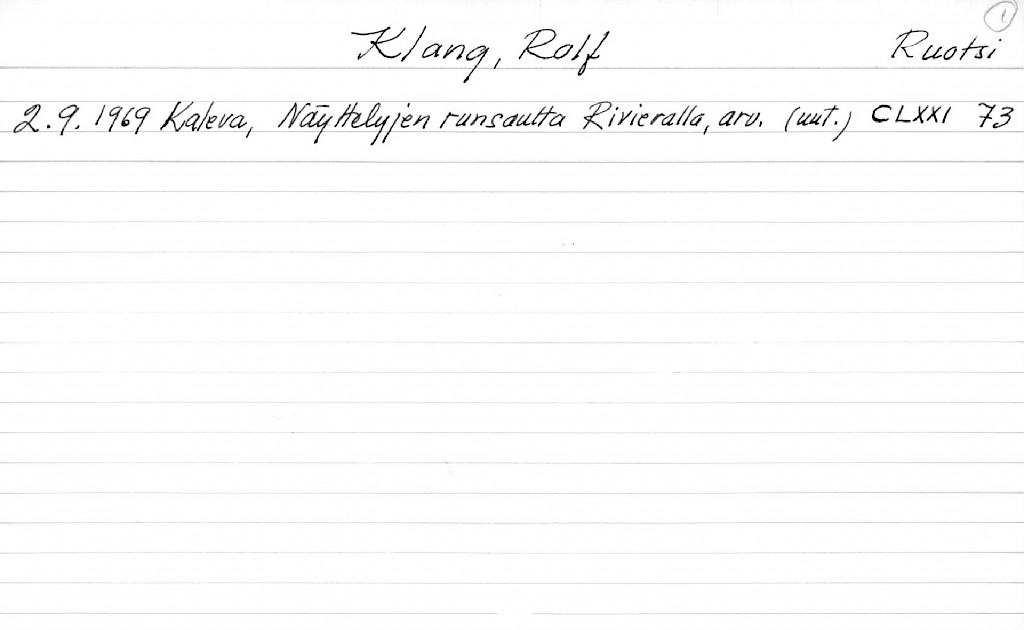 1
Klang, Rolf Ruotsi
2.9. 1969 Kaleva, Näyttelyjen runsautta Rivieralla, arv. (uut.) CLXXI 73